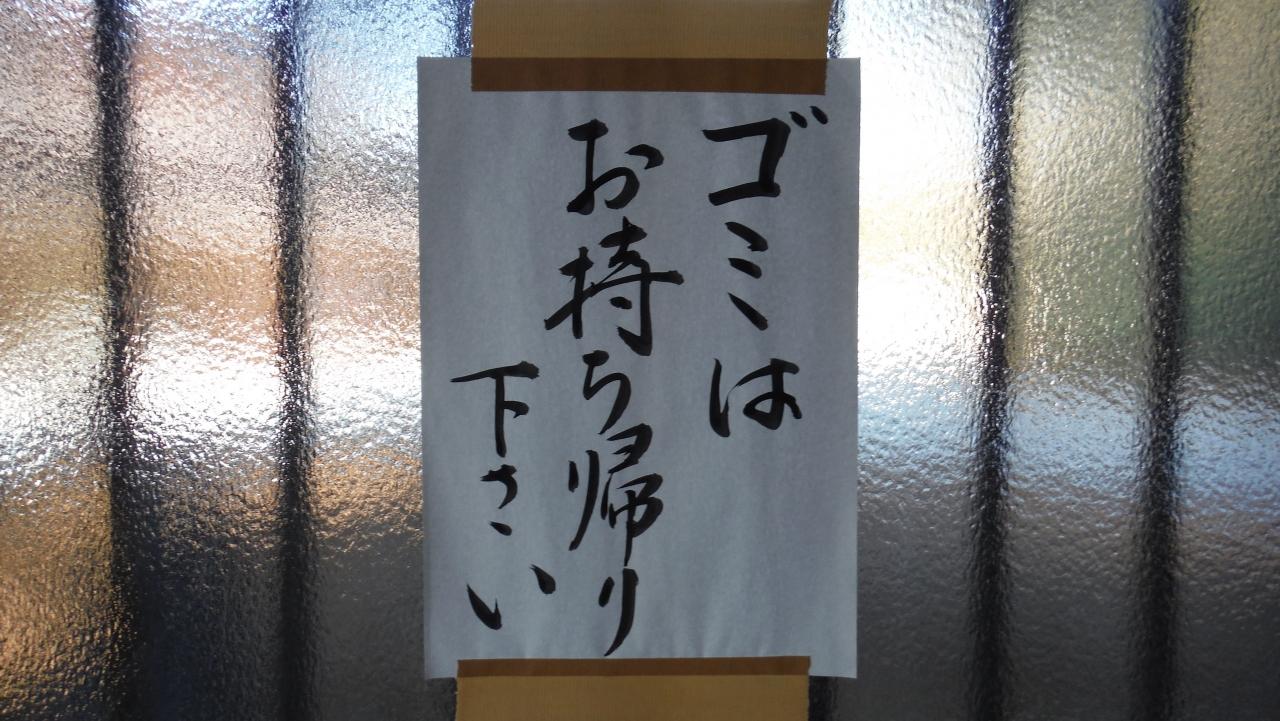 ゴミは
お持ち帰り
下さい